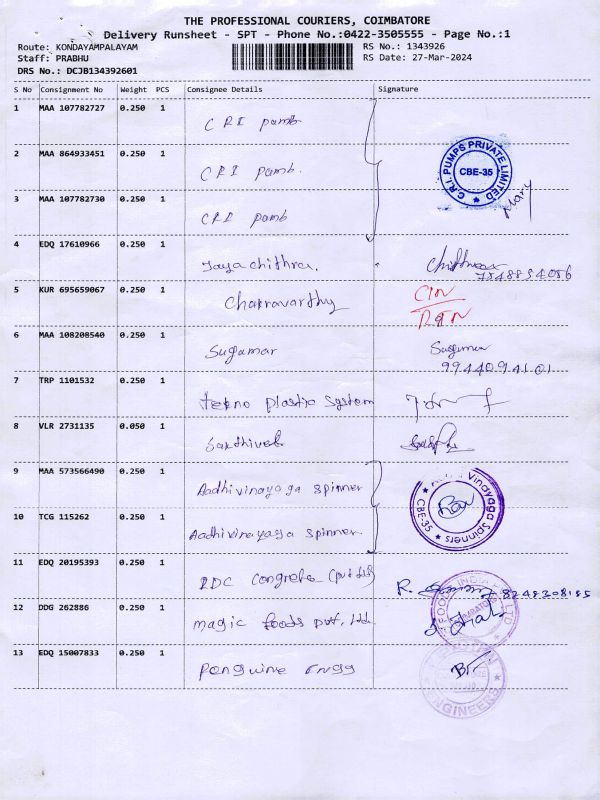 THE PROFESSIONAL COURIERS, COIMBATORE
Delivery Runsheet - SPT - Phone No.:0422-3505555 - Page No.:1
Route: KONDAYAMPALAYAM RS No.: 1343926
Staff: PRABHU RS Date: 27-Mar-2024
DRS No.: DCJB134392601
S No Consignment No Weight PCS Consignee Details Signature
1 MAA 107782727 0.250 1 CRI pamb
2 MAA 864933451 0.250 1 CRI pamb.
C.R.I. PUMPS PRIVATE LIMITED
CBE-35
3 MAA 107782730 0.250 1 CRI pamb
4 EDQ 17610966 0.250 1 Jayachithra.
5 KUR 695659067 0.250 1 Chakravarthy
6 MAA 108208540 0.250 1 Sugamar
99440 94101
7 TRP 1101532 0.250 1 tekno plastic System
8 VLR 2731135 0.050 1 Sakthivel
9 MAA 573566490 0.250 1 Aadhivinayaga spinner
Vinayaga Spinners
CBE-35
10 TCG 115262 0.250 1 Aadhivinayaga spinner.
11 EDQ 20195393 0.250 1 RDC Congrete (pvt ltd)
8248308185
12 DDG 262886 0.250 1 magic foods pvt. ltd
13 EDQ 15007833 0.250 1 Penguine Engg
ENGINEERS